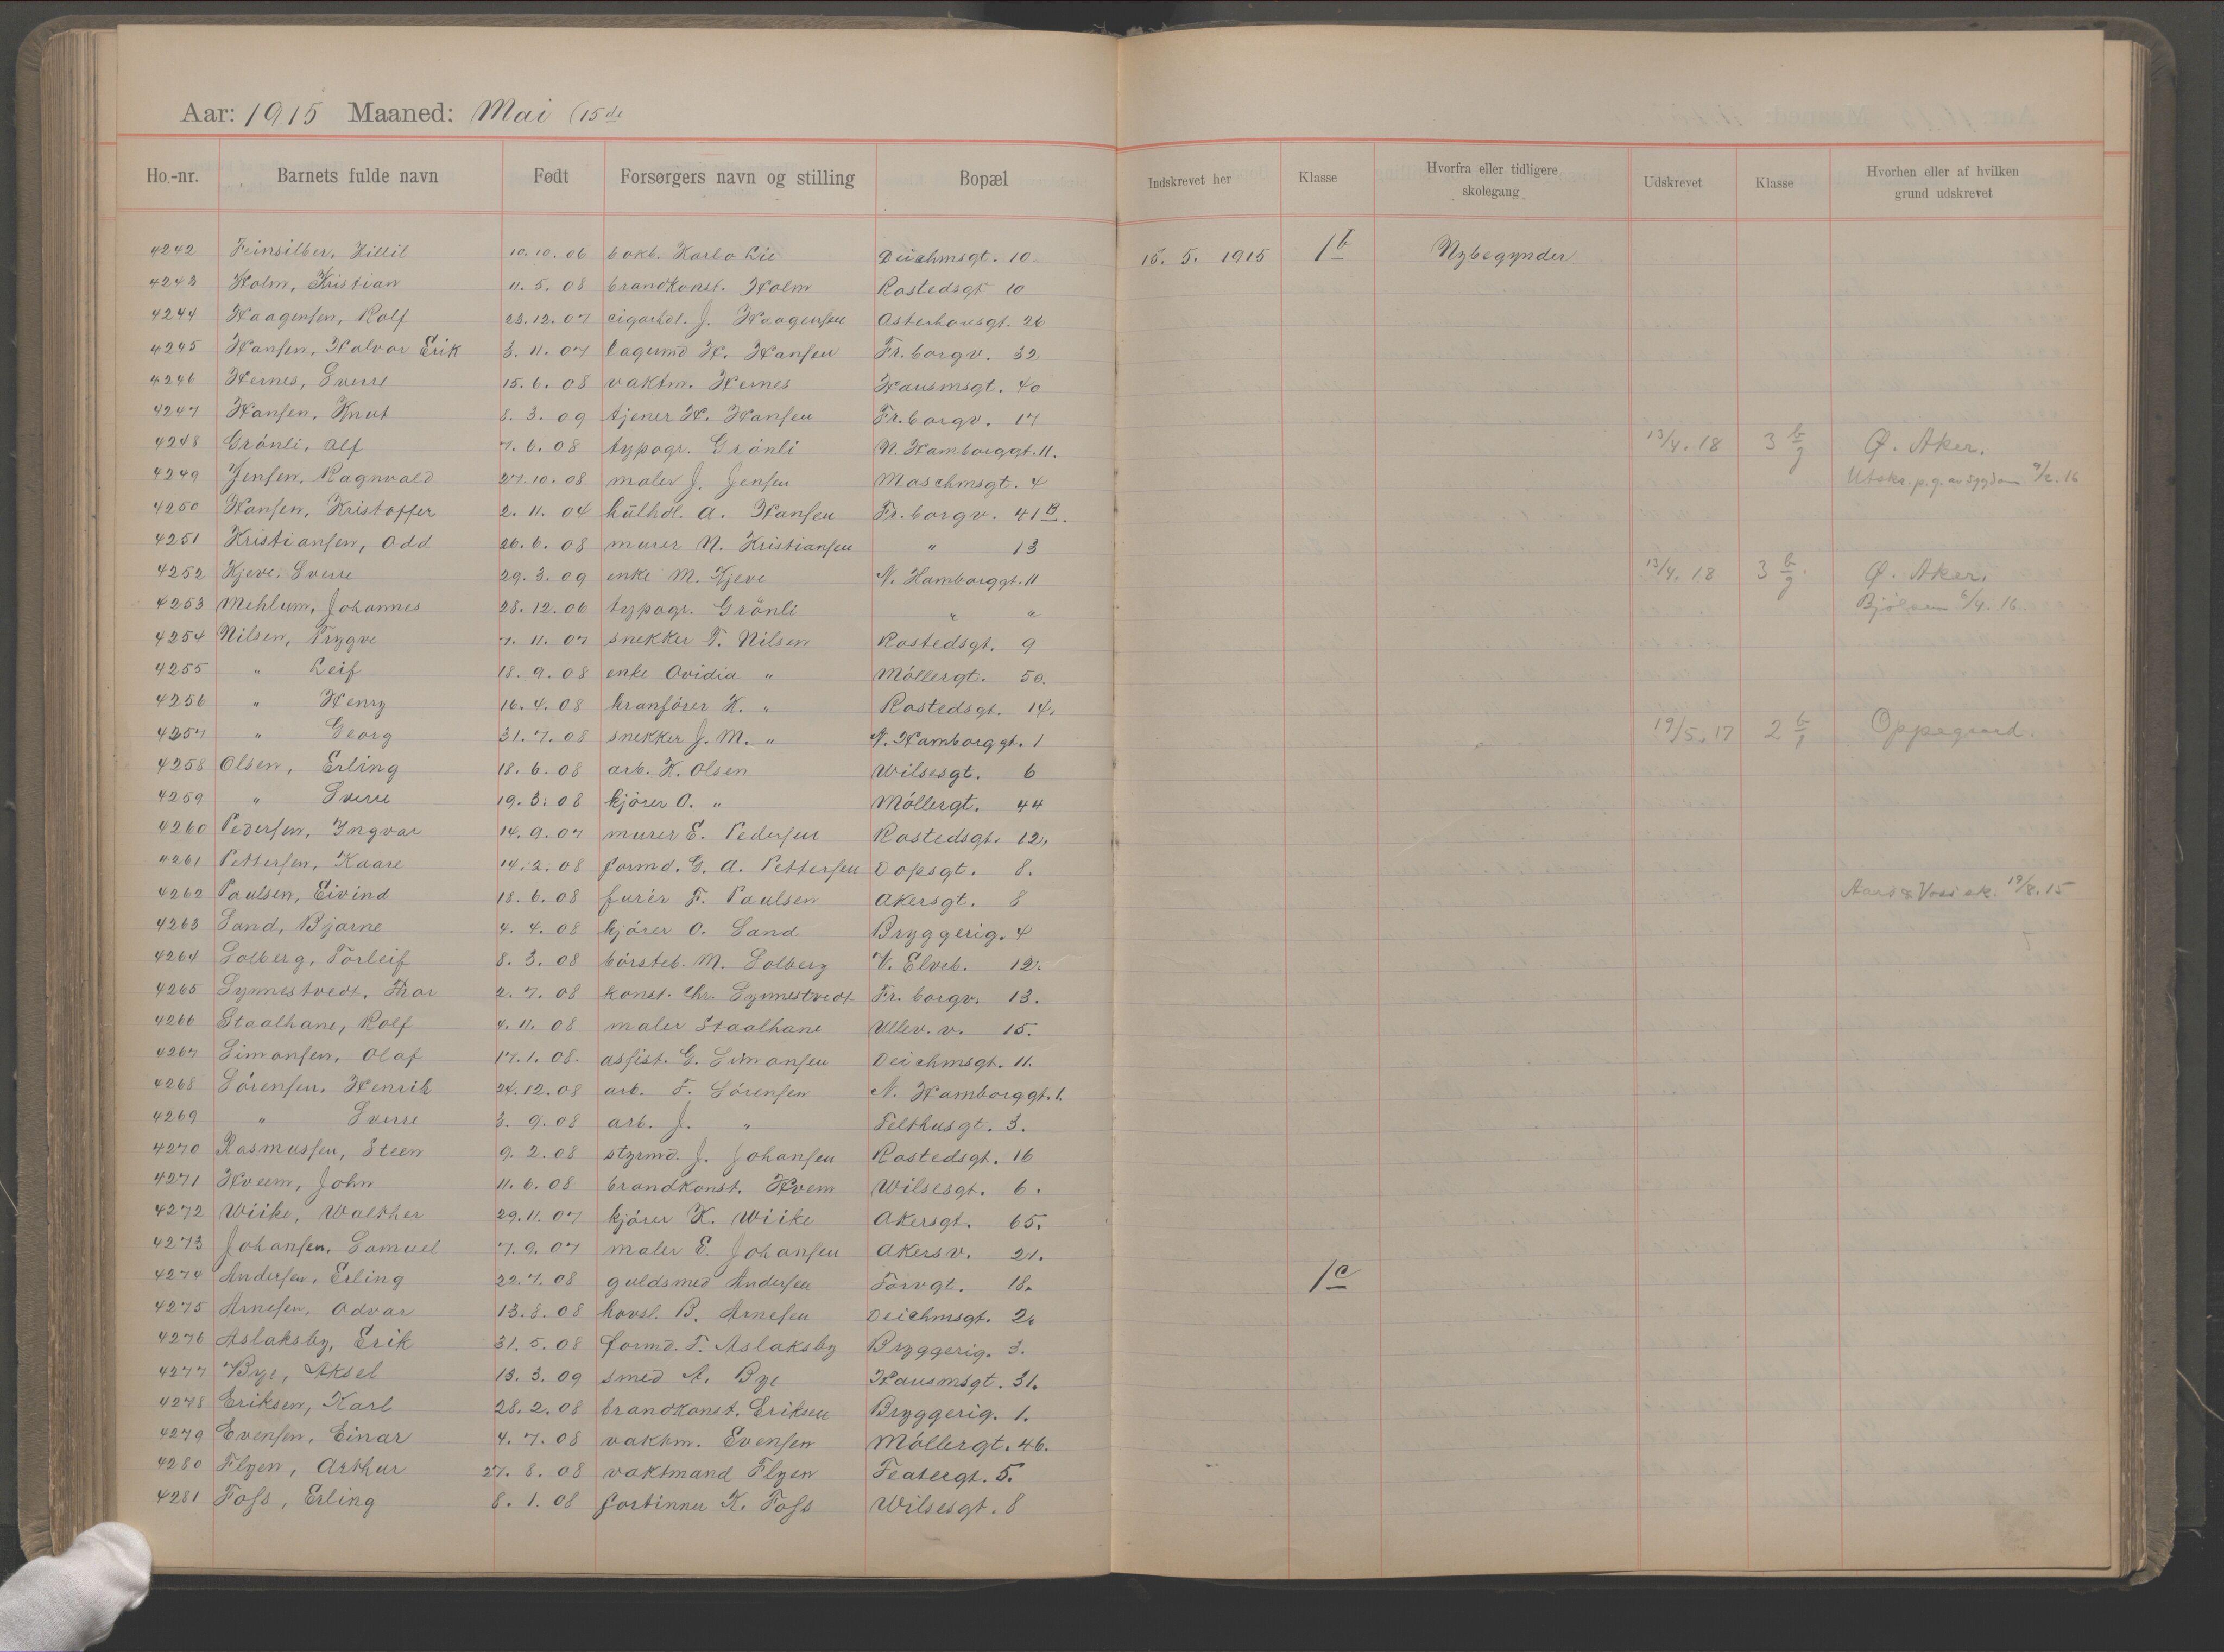 Aar: 1915 Maaned: Mai (15de
Ho.-nr. Barnets fulde navn Født Forsørgers navn og stilling Bopæl Indskrevet her Klasse Hvorfra eller tidligere skolegang Udskrevet Klasse Hvorhen eller af hvilken grund udskrevet
4242 Feinsilber, Hillil 10.10.06 bokb. Karlo Lie Deichmsgt. 10 15. 5. 1915 1b Nybegynder
4243 Holm, Kristian 11.5.08 brandkonst. Holm Rostedsgt 10
4244 Haagensen, Rolf 23.12.07 cigarhdl. J. Haagensen Osterhausgt. 26
4245 Hansen, Halvor Erik 3.11.07 lagermd H. Hansen Fr.borgv. 32
4246 Hernes, Sverre 15.6.08 vaktm. Hernes Hausmsgt. 40
4247 Hansen, Knut 8.3.09 tjener H. Hansen Fr.borgv. 17
4248 Grönli, Alf 7.6.08 typogr. Grönli N. Hamborggt. 11. 13/4.18 3 b/g Ø. Aker.
4249 Jensen, Ragnvald 27.10.08 maler J. Jensen Maschmsgt. 4 Utskr. p.g. av sygdom 9/2.16
4250 Hansen, Kristoffer 2.11.04 kulhdl. A. Hansen Fr.borgv. 41B.
4251 Kristiansen, Odd 26.6.08 murer N. Kristiansen " 13
4252 Kjeve, Sverre 29.3.09 enke M. Kjeve N. Hamborggt. 11 13/4.18 3 b/g. Ø. Aker.
4253 Mehlum, Johannes 28.12.06 typogr. Grönli " " Bjölsen 6/4.16.
4254 Nilsen, Trygve 7.11.07 snekker T. Nilsen Rostedsgt. 9
4255 " Leif 18.9.08 enke Ovidia " Möllergt. 50.
4256 " Henry 16.4.08 kranförer K. " Rostedsgt. 14.
4257 " Georg 31.7.08 snekker J. M. " N. Hamborggt. 1 19/5.17 2 b/g Oppegaard.
4258 Olsen, Erling 18.6.08 arb. K. Olsen Wilsesgt. 6
4259 " Sverre 19.3.08 kjörer O. " Möllergt. 44
4260 Pedersen, Ingvar 14.9.07 murer E. Pedersen Rostedsgt. 12.
4261 Pettersen, Kaare 14.2.08 formd. G. A. Pettersen Dopsgt. 8.
4262 Paulsen, Eivind 18.6.08 furér F. Paulsen Akersgt. 8 Aars & Voss sk. 19/8.15
4263 Sand, Bjarne 4.4.08 kjörer O. Sand Bryggerig. 4
4264 Solberg, Torleif 8.3.08 börsteb. M. Solberg V. Elveb. 12.
4265 Synnestvedt, Thor 2.7.08 konst. Chr. Synnestvedt Fr.borgv. 13.
4266 Staalhane, Rolf 4.11.08 maler Staalhane Ullev.v. 15.
4267 Simonsen, Olaf 17.1.08. assist. G. Simonsen Deichmsgt. 11.
4268 Sörensen, Henrik 24.12.08 arb. F. Sörensen N. Hamborggt. 1.
4269 " Sverre 3.9.08 arb. J. " Telthusgt. 3.
4270 Rasmussen, Steen 9.2.08 styrmd. J. Johansen Rostedsgt. 16
4271 Hveem, John 11.6.08 brandkonst. Hvem Wilsesgt. 6.
4272 Wiike, Walther 29.11.07 kjörer K. Wiike Akersgt. 65.
4273 Johansen, Samuel 7.9.07 maler E. Johansen Akersv. 21.
4274 Andersen, Erling 22.7.08 guldsmed Andersen Torvgt. 18. 1c
4275 Arnesen, Odvar 13.8.08 hovsl. B. Arnesen Deichmsgt. 2.
4276 Aslaksby, Erik 31.5.08 formd. T. Aslaksby Bryggerig. 3.
4277 Bye, Aksel 13.3.09 smed A. Bye Hausmsgt. 31.
4278 Eriksen, Karl 28.2.08 brandkonst. Eriksen Bryggerig. 1.
4279 Evensen, Einar 4.7.08 vaktm. Evensen Möllergt. 46.
4280 Flyen, Arthur 27.8.08 vaktmand Flyen Teatergt. 5.
4281 Foss, Erling 8.1.08 fortinner K. Foss Wilsesgt. 8